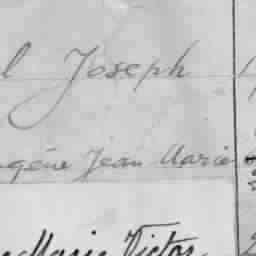 l Joseph
ugène Jean Marie
Marie Victor